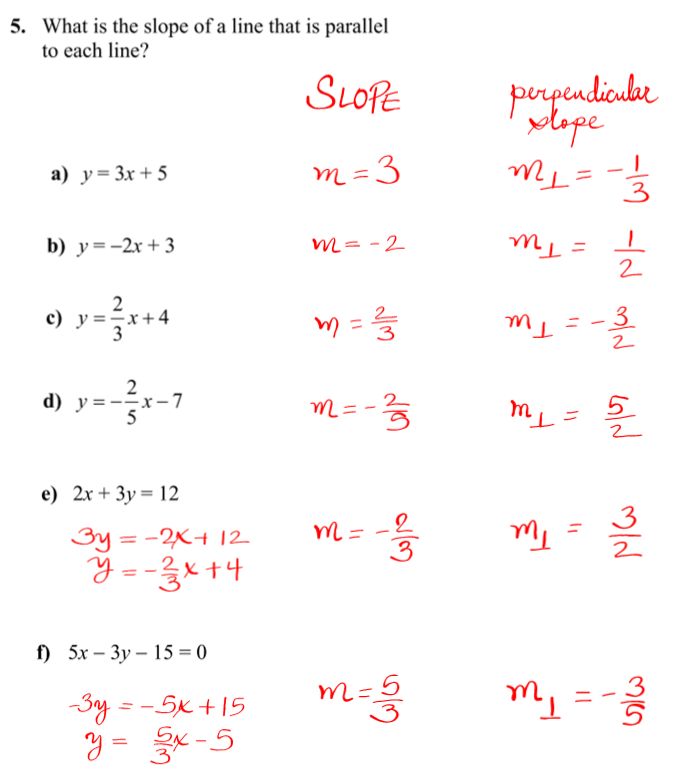 5. What is the slope of a line that is parallel
to each line?
SLOPE perpendicular
slope
a) y = 3x + 5 m = 3 m⊥ = -1/3
b) y = –2x + 3 m = -2 m⊥ = 1/2
c) y = 2/3 x + 4 m = 2/3 m⊥ = -3/2
d) y = –2/5 x – 7 m = -2/5 m⊥ = 5/2
e) 2x + 3y = 12
3y = -2x + 12 m = -2/3 m⊥ = 3/2
y = -2/3 x + 4
f) 5x – 3y – 15 = 0
-3y = -5x + 15 m = 5/3 m⊥ = -3/5
y = 5/3 x - 5